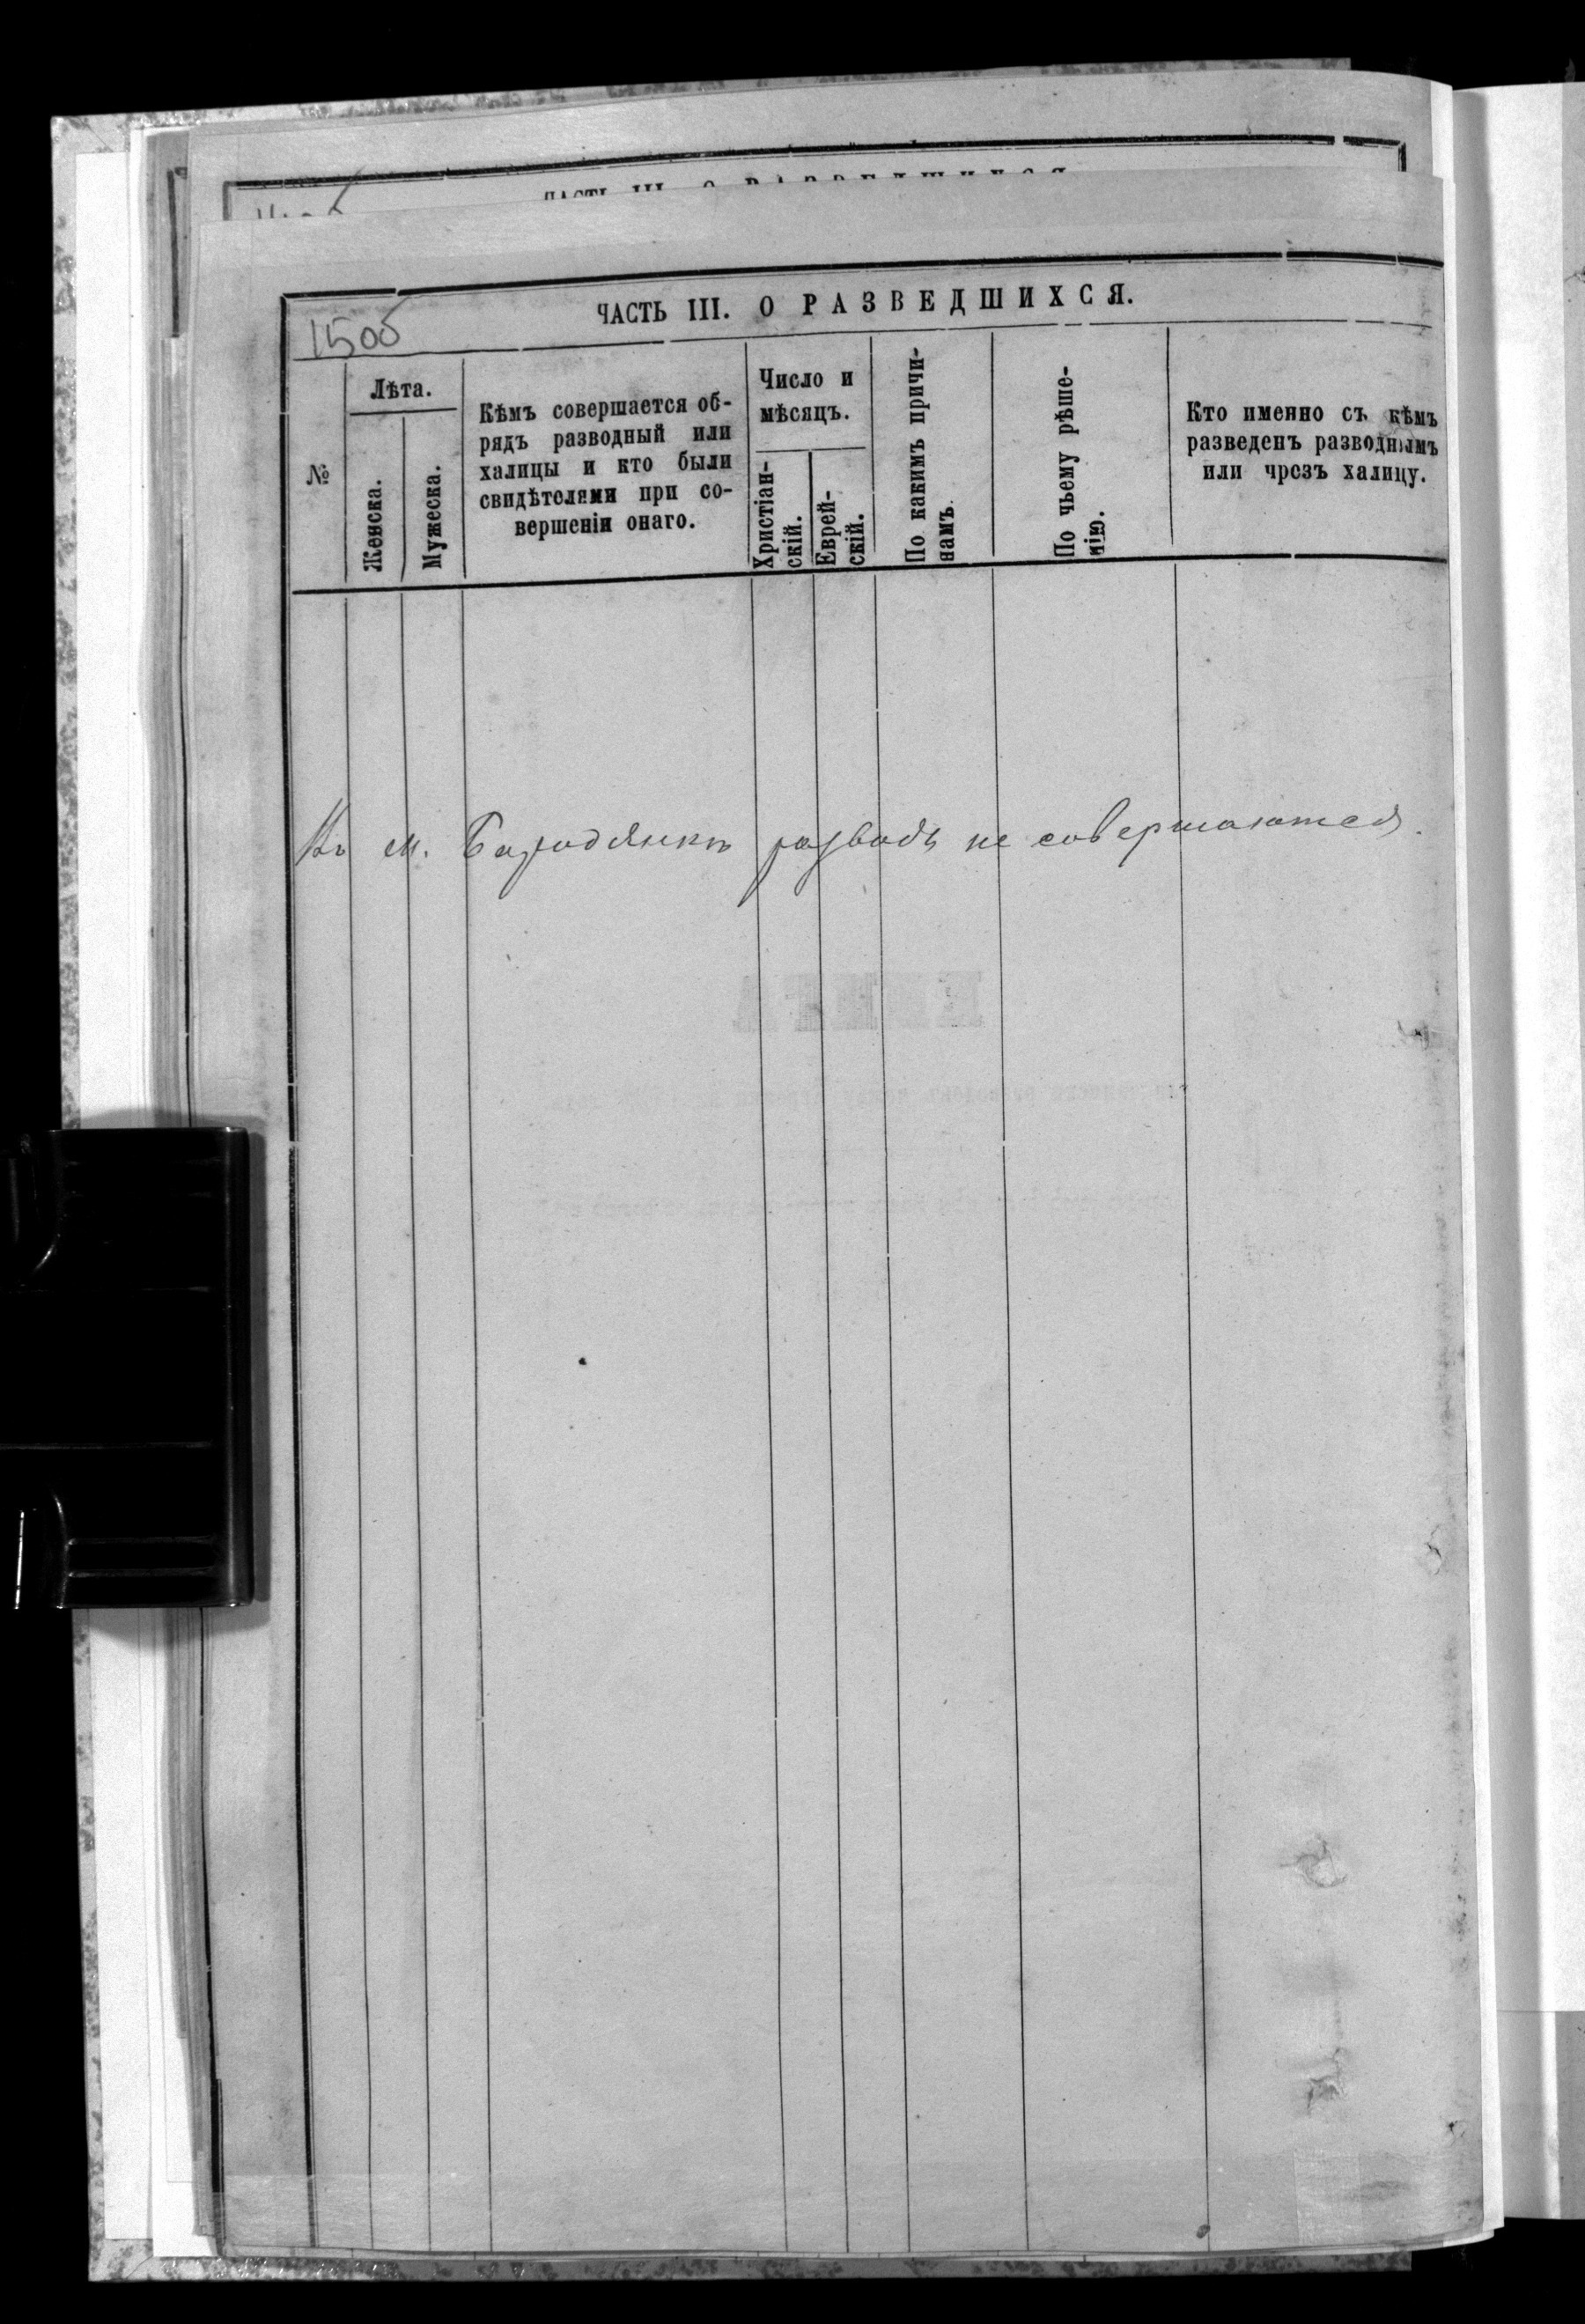 ЧАСТЬ III. О РАЗВЕДШИХСЯ.
150б
ЧАСТЬ III. О РАЗВЕДШИХСЯ.
№
Лѣта.
Женска.
Мужеска.
Кѣмъ совершается об-
рядъ разводный или
халицы и кто были
свидѣтелями при со-
вершеніи онаго.
Число и
мѣсяцъ.
Христіан-
скій.
Еврей-
скій.
По какимъ причи-
намъ.
По чьему рѣше-
нію.
Кто именно съ кѣмъ
разведенъ разводнымъ
или чрезъ халицу.
Въ м. Бородянкѣ разводъ не совершаются.